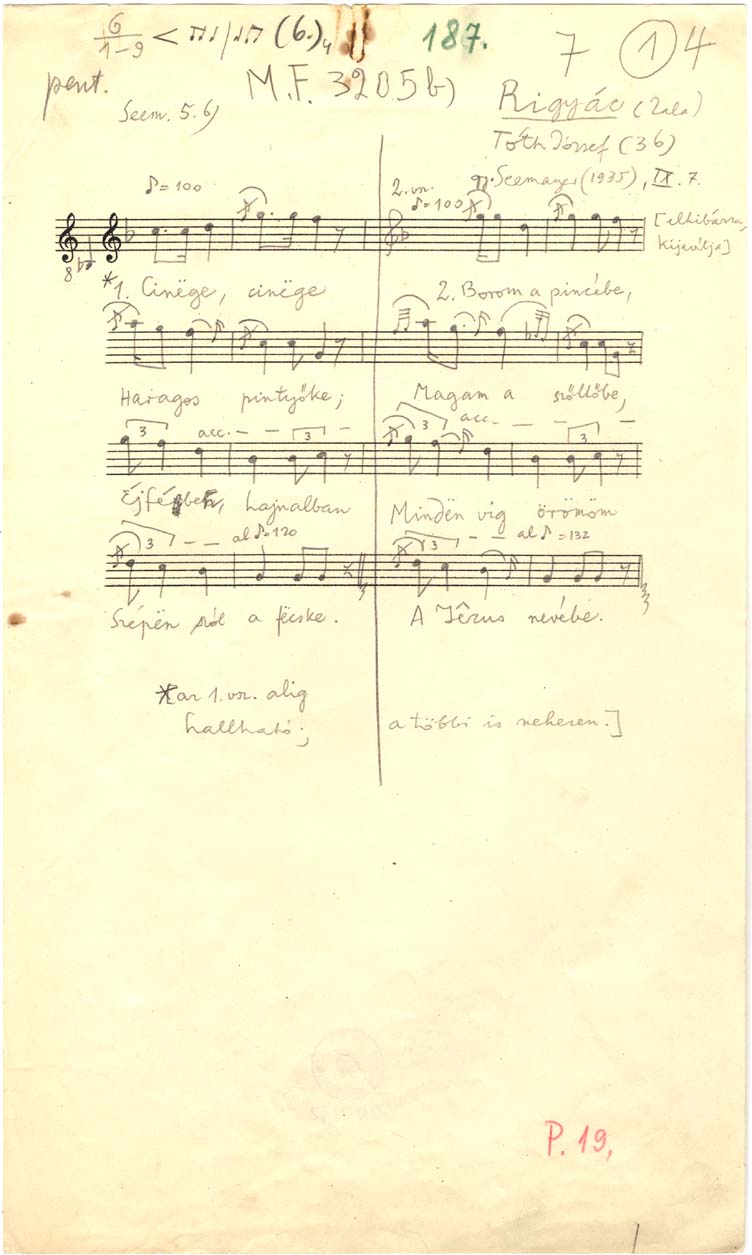 6
1-9
(6.)4
187.
7 1 4
pent.
M.F. 3205b)
Seem. 5.6)
Rigyác (Zala)
Tóth József (36)
gy. Seemayer (1935), IX. 7.
♪=100
2. vsz.
♪=100
[elhibázza,
kijavítja]
8
*1. Cinëge, cinëge
2. Borom a pincébe,
Haragos pintyőke;
Magam a szőllőbe,
3 acc. — — 3
3 acc. — — — 3
hajnalban
Mindën vig örömöm
3 — — al ♪=120
3 — — al ♪=132
Szépën szól a fëcske.
A Jézus nevébe.
*az 1. vsz. alig
hallható;
a többi is nehezen.]
P. 19,